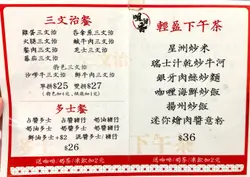 三文治餐
雞蛋三文治 吞拿魚三文治
火腿三文治 鹹牛肉三文治
餐肉三文治 芝士三文治
蕃茄三文治
特色三文治
沙嗲牛三文治 鮮牛肉三文治
單拼$25 雙拼$27
多士餐
占醬多士 占醬豬仔 奶油豬仔
奶油多士 奶醬多士 奶醬豬仔
西多士
$26
送咖啡/奶茶/凍飲加2元
輕盈下午茶
星洲炒米
瑞士汁乾炒牛河
銀牙肉絲炒麵
咖喱海鮮炒飯
揚州炒飯
迷你燴肉醬意粉
$36
送咖啡/奶茶/凍飲加2元